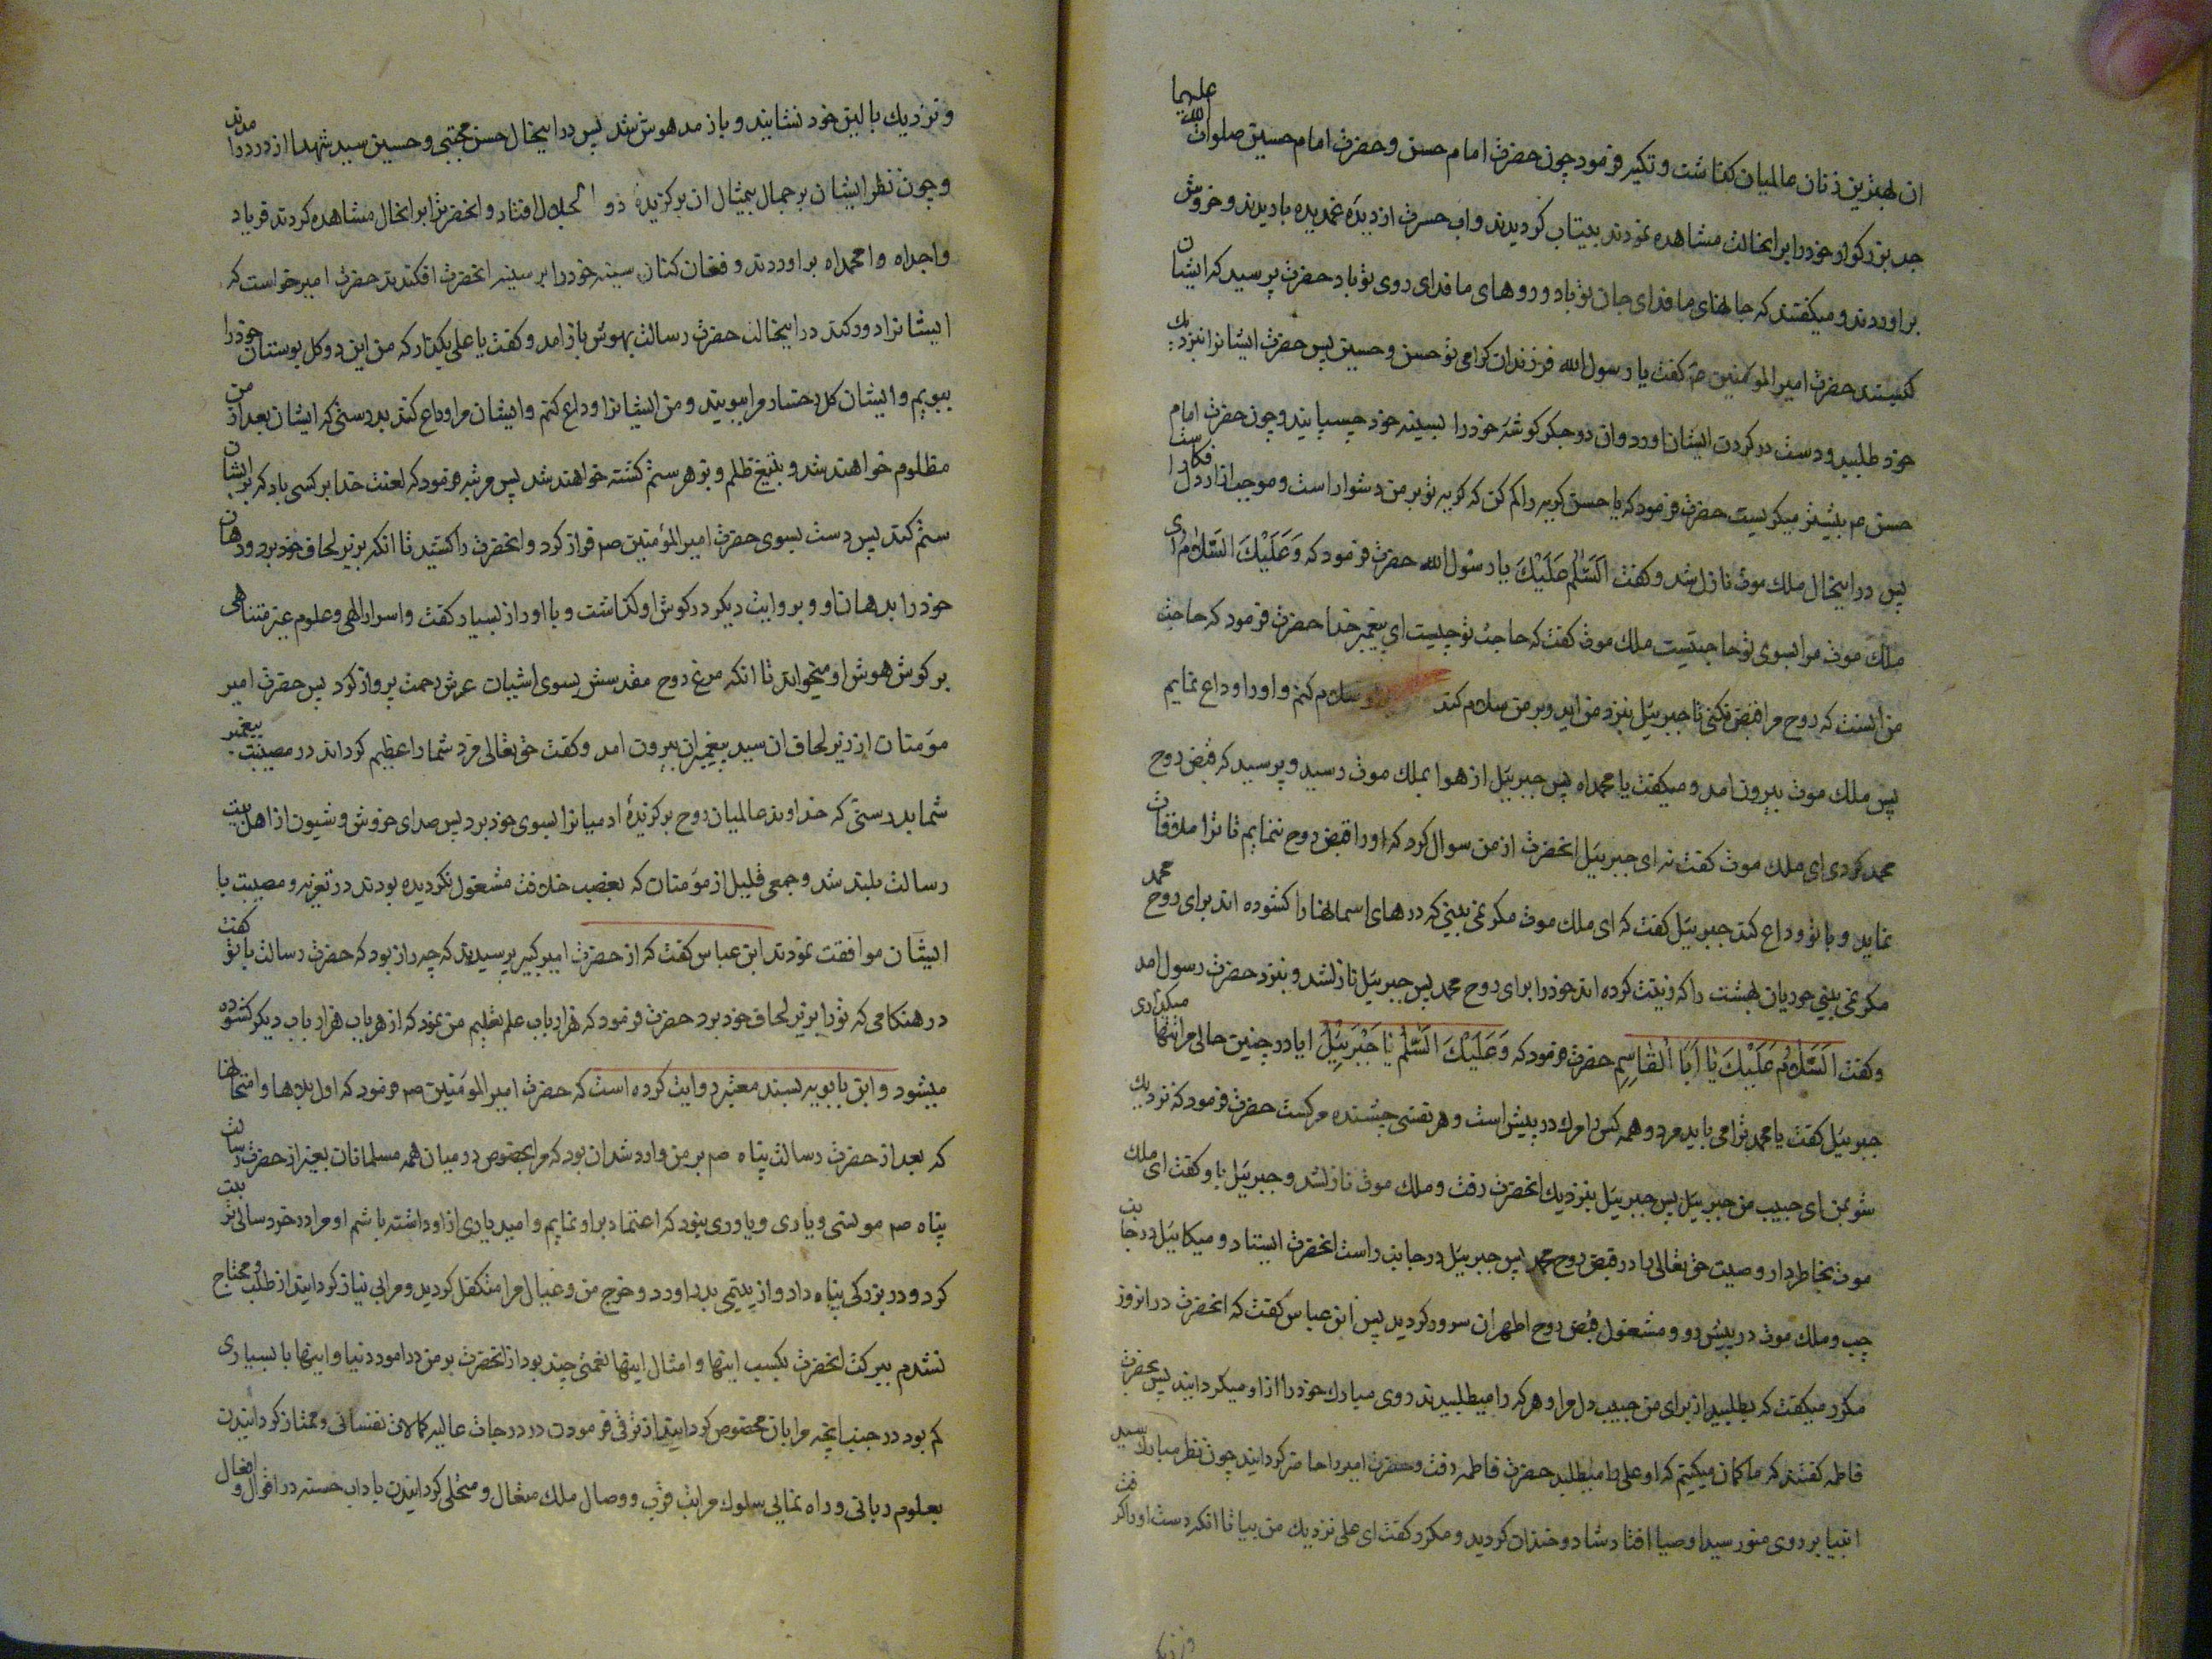 ان بهترین زنان عالمیان گذاشت و تکیه فرمود چون حضرت امام حسن و حضرت امام حسین صلوات الله علیهما
جد بزرکوار خود را برانحالت مشاهده نمودند بیتاب کردیدند و اب حسرت از دیده غمدیده باریدند و خروش
براوردند و میکفتند که جانهای ما فدای جان تو باد و روهای ما فدای روی تو باد حضرت پرسید که ایشان
کیستند حضرت امیرالمومنین ع کفت یا رسول الله فرزندان کرامی تو حسن و حسین پس حضرت ایشانرا بنزدیك
خود طلبید و دست در کردن ایشان اورد و ان دو جکر کوشه خود را بسینه خود چسپانید و چون حضرت امام
حسن ع بیشتر میکریست حضرت فرمود که یا حسن کریه را کم کن که کریه تو بر من دشوار است و موجب ازار دل فکار است
پس در اینحال ملك موت نازل شد و کفت اَلسَّلٰمُ عَلَیْكَ یا رَسُول الله حضرت فرمود که وَعَلَیْكَ السَّلامُ ای
ملك موت مرا بسوی تو حاجتیست ملك موت کفت که حاجت تو چیست ای پیغمبر خدا حضرت فرمود که حاجت
من انست که روح مرا قبض نکنی تا جبرییل بنزد من اید و بر من سلام کند و سلام کنم و او را وداع نمایم
پس ملك موت بیرون امد و میکفت یا محمداه پس جبرییل از هوا بملك موت رسید و پرسید که قبض روح
محمد کردی ای ملك موت کفت نه ای جبرییل انحضرت از من سوال کرد که او را قبض روح ننمایم تا ترا ملاقات
نماید و با تو وداع کند جبرییل کفت که ای ملك موت مکر نمی بینی که درهای اسمانها را کشوده اند برای روح محمد
مکر نمی بینی حوریان بهشت را که زینت کرده اند خود را برای روح محمد پس جبرییل نازلشد و بنزد حضرت رسول امد
و کفت اَلسَّلامُ عَلَیْكَ یٰا اَبَا الْقٰاسِمِ حضرت فرمود که وَعَلَیْكَ السَّلٰمُ یٰا جَبْرَییِلْ ایا در چنین حالی مرا تنها میکذاری
جبرییل کفت یا محمد ترا می باید مرد و همه کس را مرك در پیش است و هر نفسی چشنده مرکست حضرت فرمود که نزدیك
شو بمن ای حبیب من جبرییل پس جبرییل بنزدیك انحضرت رفت و ملك موت نازلشد و جبرییل باو کفت ای ملك
موت بخاطر دار وصیت حق تعالی را در قبض روح محمد پس جبرییل در جانب راست انحضرت ایستاد و میکاییل در جانب
چپ و ملك موت در پیش رو و مشغول قبض روح اطهر ان سرور کردید پس ابن عباس کفت که انحضرت در انروز
مکرر میکفت که بطلبید از برای من حبیب دل مرا و هر که را میطلبیدند روی مبارك خود را از او میکردانید پس بحضرت
فاطمه کفتند که ما کمان میکنیم که او علی را میطلبد حضرت فاطمه رفت و حضرت امیر را حاضر کردانید چون نظر مبارك سید
انبیا بر روی منور سید اوصیا افتاد شاد و خندان کردید و مکرر کفت ای علی نزدیك من بیا تا انکه دست او را کرفت
و نزدیك بالین خود نشانید و باز مدهوش شد پس در اینحال حسن مجتبی و حسین سید شهدا از در درامدند
و چون نظر ایشان بر جمال بیمثال ان برکزیده ذو الجلال افتاد و انحضرترا برانحال مشاهده کردند فریاد
واجداه وا محمداه براوردند و فغان کنان سینه خود را بر سینه انحضرت افکندند حضرت امیر خواست که
ایشانرا دور کند در اینحالت حضرت رسالت بهوش باز امد و کفت یا علی بکذار که من این دو کل بوستان خود را
ببویم و ایشان کل رخسار مرا ببویند و من ایشانرا وداع کنم و ایشان مرا وداع کنند بدرستی که ایشان بعد از من
مظلوم خواهند شد و بتیغ ظلم و بزهر ستم کشته خواهند شد پس سه مرتبه فرمود که لعنت خدا بر کسی باد که بر ایشان
ستم کند پس دست بسوی حضرت امیرالمؤمنین ص دراز کرد و انحضرت را کشید تا انکه بزیر لحاف خود برد و دهان
خود را بدهان او و بروایت دیکر در کوش او کذاشت و با او راز بسیار کفت و اسرار الهی و علوم غیر متناهی
بر کوش هوش او میخواند تا انکه مرغ روح مقدسش بسوی اشیان عرش رحمت پرواز کرد پس حضرت امیر
مؤمنان از زیر لحاف ان سید پیغمبران بیرون امد و کفت حق تعالی مزد شما را عظیم کرداند در مصیبت پیغمبر
شما بدرستی که خداوند عالمیان روح برکزیدهٔ ادمیانرا بسوی خود برد پس صدای خروش و شیون از اهل بیت
رسالت بلند شد و جمعی قلیل از مؤمنان که بغصب خلافت مشغول نکردیده بودند در تعزیه و مصیبت با
ایشان موافقت نمودند ابن عباس کفت که از حضرت امیر کبیر پرسیدند که چه راز بود که حضرت رسالت با تو کفت
در هنکامی که ترا بزیر لحاف خود برد حضرت فرمود که هزار باب علم تعلیم من نمود که از هر باب هزار باب دیکر کشوده
میشود و ابن بابویه بسند معتبر روایت کرده است که حضرت امیرالمؤمنین ص فرمود که اول بلاها و امتحانها
که بعد از حضرت رسالت پناه ص بر من وارد شد ان بود که مرا بخصوص در میان همه مسلمانان بغیر از حضرت رسالت
پناه ص مونسی و یاری و یاوری نبود که اعتماد بر او نمایم و امید یاری از او داشته باشم او مرا در خورد سالی تربیت
کرد و در بزرکی پناه داد و از یتیمی بدر اورد و خرج من و عیال مرا متکفل کردید و مرا بی نیاز کردانید از طلب و محتاج
نشدم ببرکت انحضرت بکسب اینها و امثال اینها نعمتی چند بود از انحضرت بر من در امور دنیا و اینها با بسیاری
کم بود در جنب انچه مرا بان مخصوص کردانید از ترقی فرمودن در درجات عالیه کمالات نفسانی و ممتاز کردانیدن
بعلوم ربانی و راه نمایی سلوك مراتب قرب و وصال ملك متعال و متحلی کردانیدن باداب حسنه در اقوال و افعال